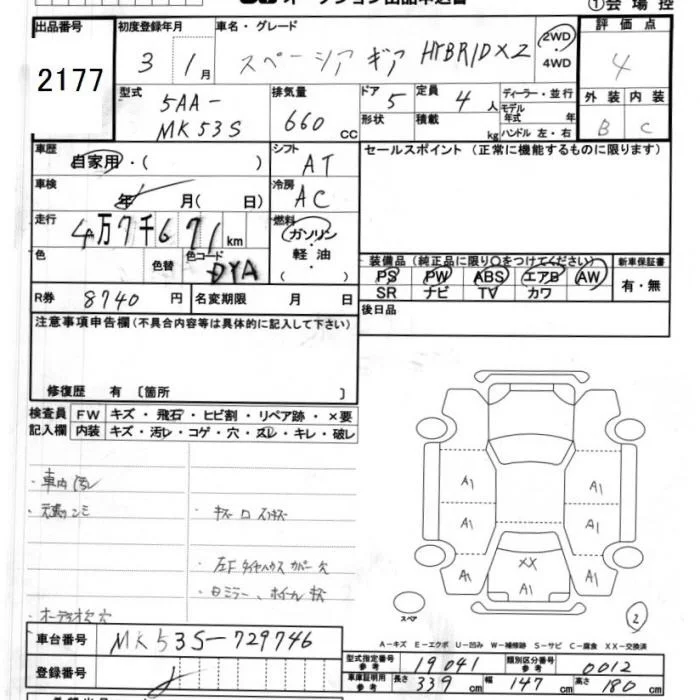 オークション出品申込書
①会場控
出品番号 初度登録年月 車名・グレード 評価点
2177 3 1月 スペーシア ギア HYBRID XZ 2WD・4WD 4
型式 排気量 ドア 定員 ディーラー・並行 外装 内装
5AA-MK53S 660cc 5 4人 モデル年式 年 B C
形状 積載 kg ハンドル 左・右
車歴 シフト セールスポイント (正常に機能するものに限ります)
自家用・( ) AT
車検 冷房
年 月( 日) AC
走行 燃料
4万7千671km ガソリン・軽油・( )
色 色替 色コード 装備品 (純正品に限り○をつけてください) 新車保証書
DYA PS PW ABS エアB AW 有・無
SR ナビ TV カワ
R券 8740円 名変期限 月 日 後日品
注意事項申告欄(不具合内容等は具体的に記入して下さい)
修復歴 有 〔箇所 〕
検査員 FW キズ・飛石・ヒビ割・リペア跡・×要
記入欄 内装 キズ・汚レ・コゲ・穴・スレ・キレ・破レ
・車内汚レ
A1 A1
A1 A1
XX
A1 A1
スペア
2
車台番号 MK53S-729746
A-キズ E-エクボ U-凹み W-補修跡 S-サビ C-腐食 XX-交換済
登録番号
型式指定番号 参考 19041 類別区分番号 参考 0012
車庫証明用 参考 長さ 339cm 幅 147cm 高さ 180cm